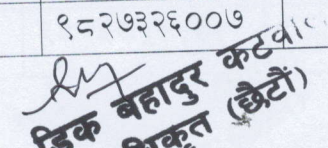 ९८२७३२६००७
डिक बहादुर कटवाल
धिकृत (छैटौं)